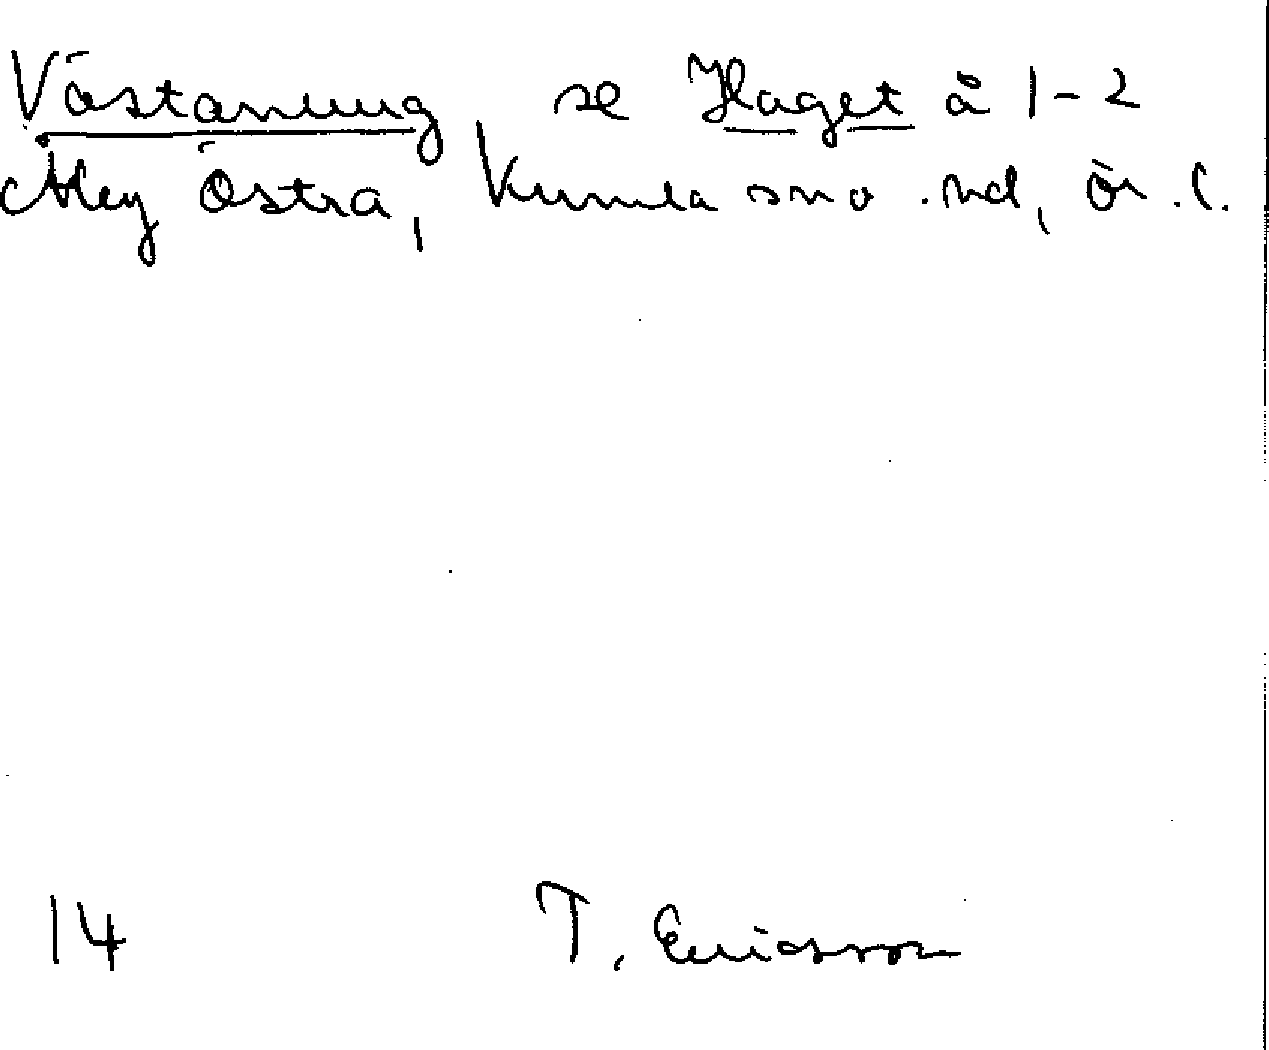 Västanung se Haget å 1-2
Östra, Kumla sn o. hd, Ör. l.
14 T. Ericsson